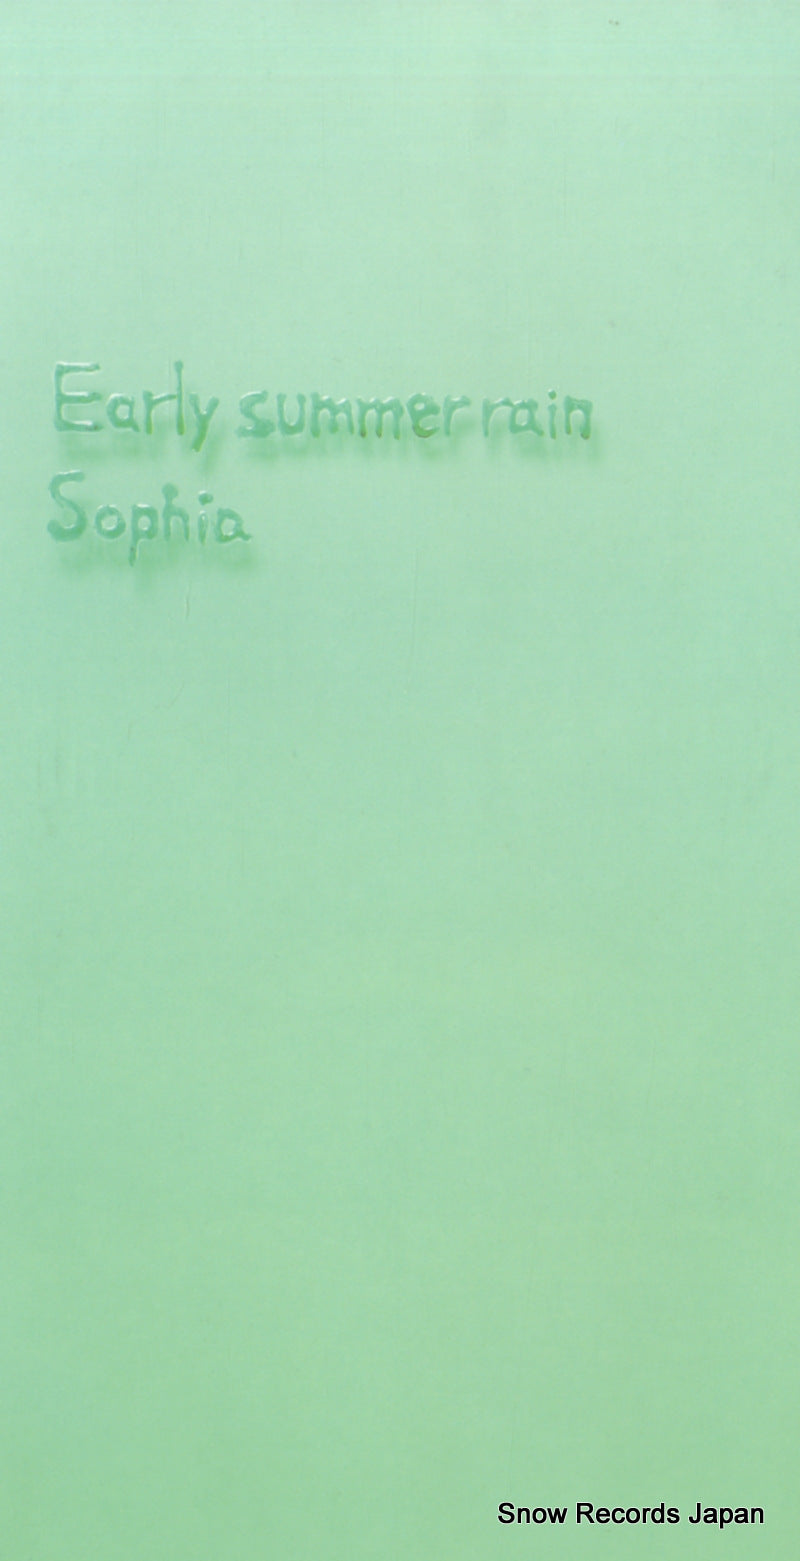 Early summer rain
Sophia
Snow Records Japan